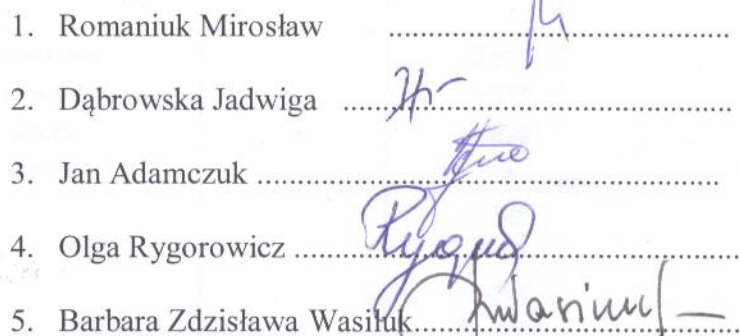 1. Romaniuk Mirosław ..................................................
2. Dąbrowska Jadwiga ..................................................
3. Jan Adamczuk ..................................................
4. Olga Rygorowicz ..................................................
5. Barbara Zdzisława Wasiluk..................................................